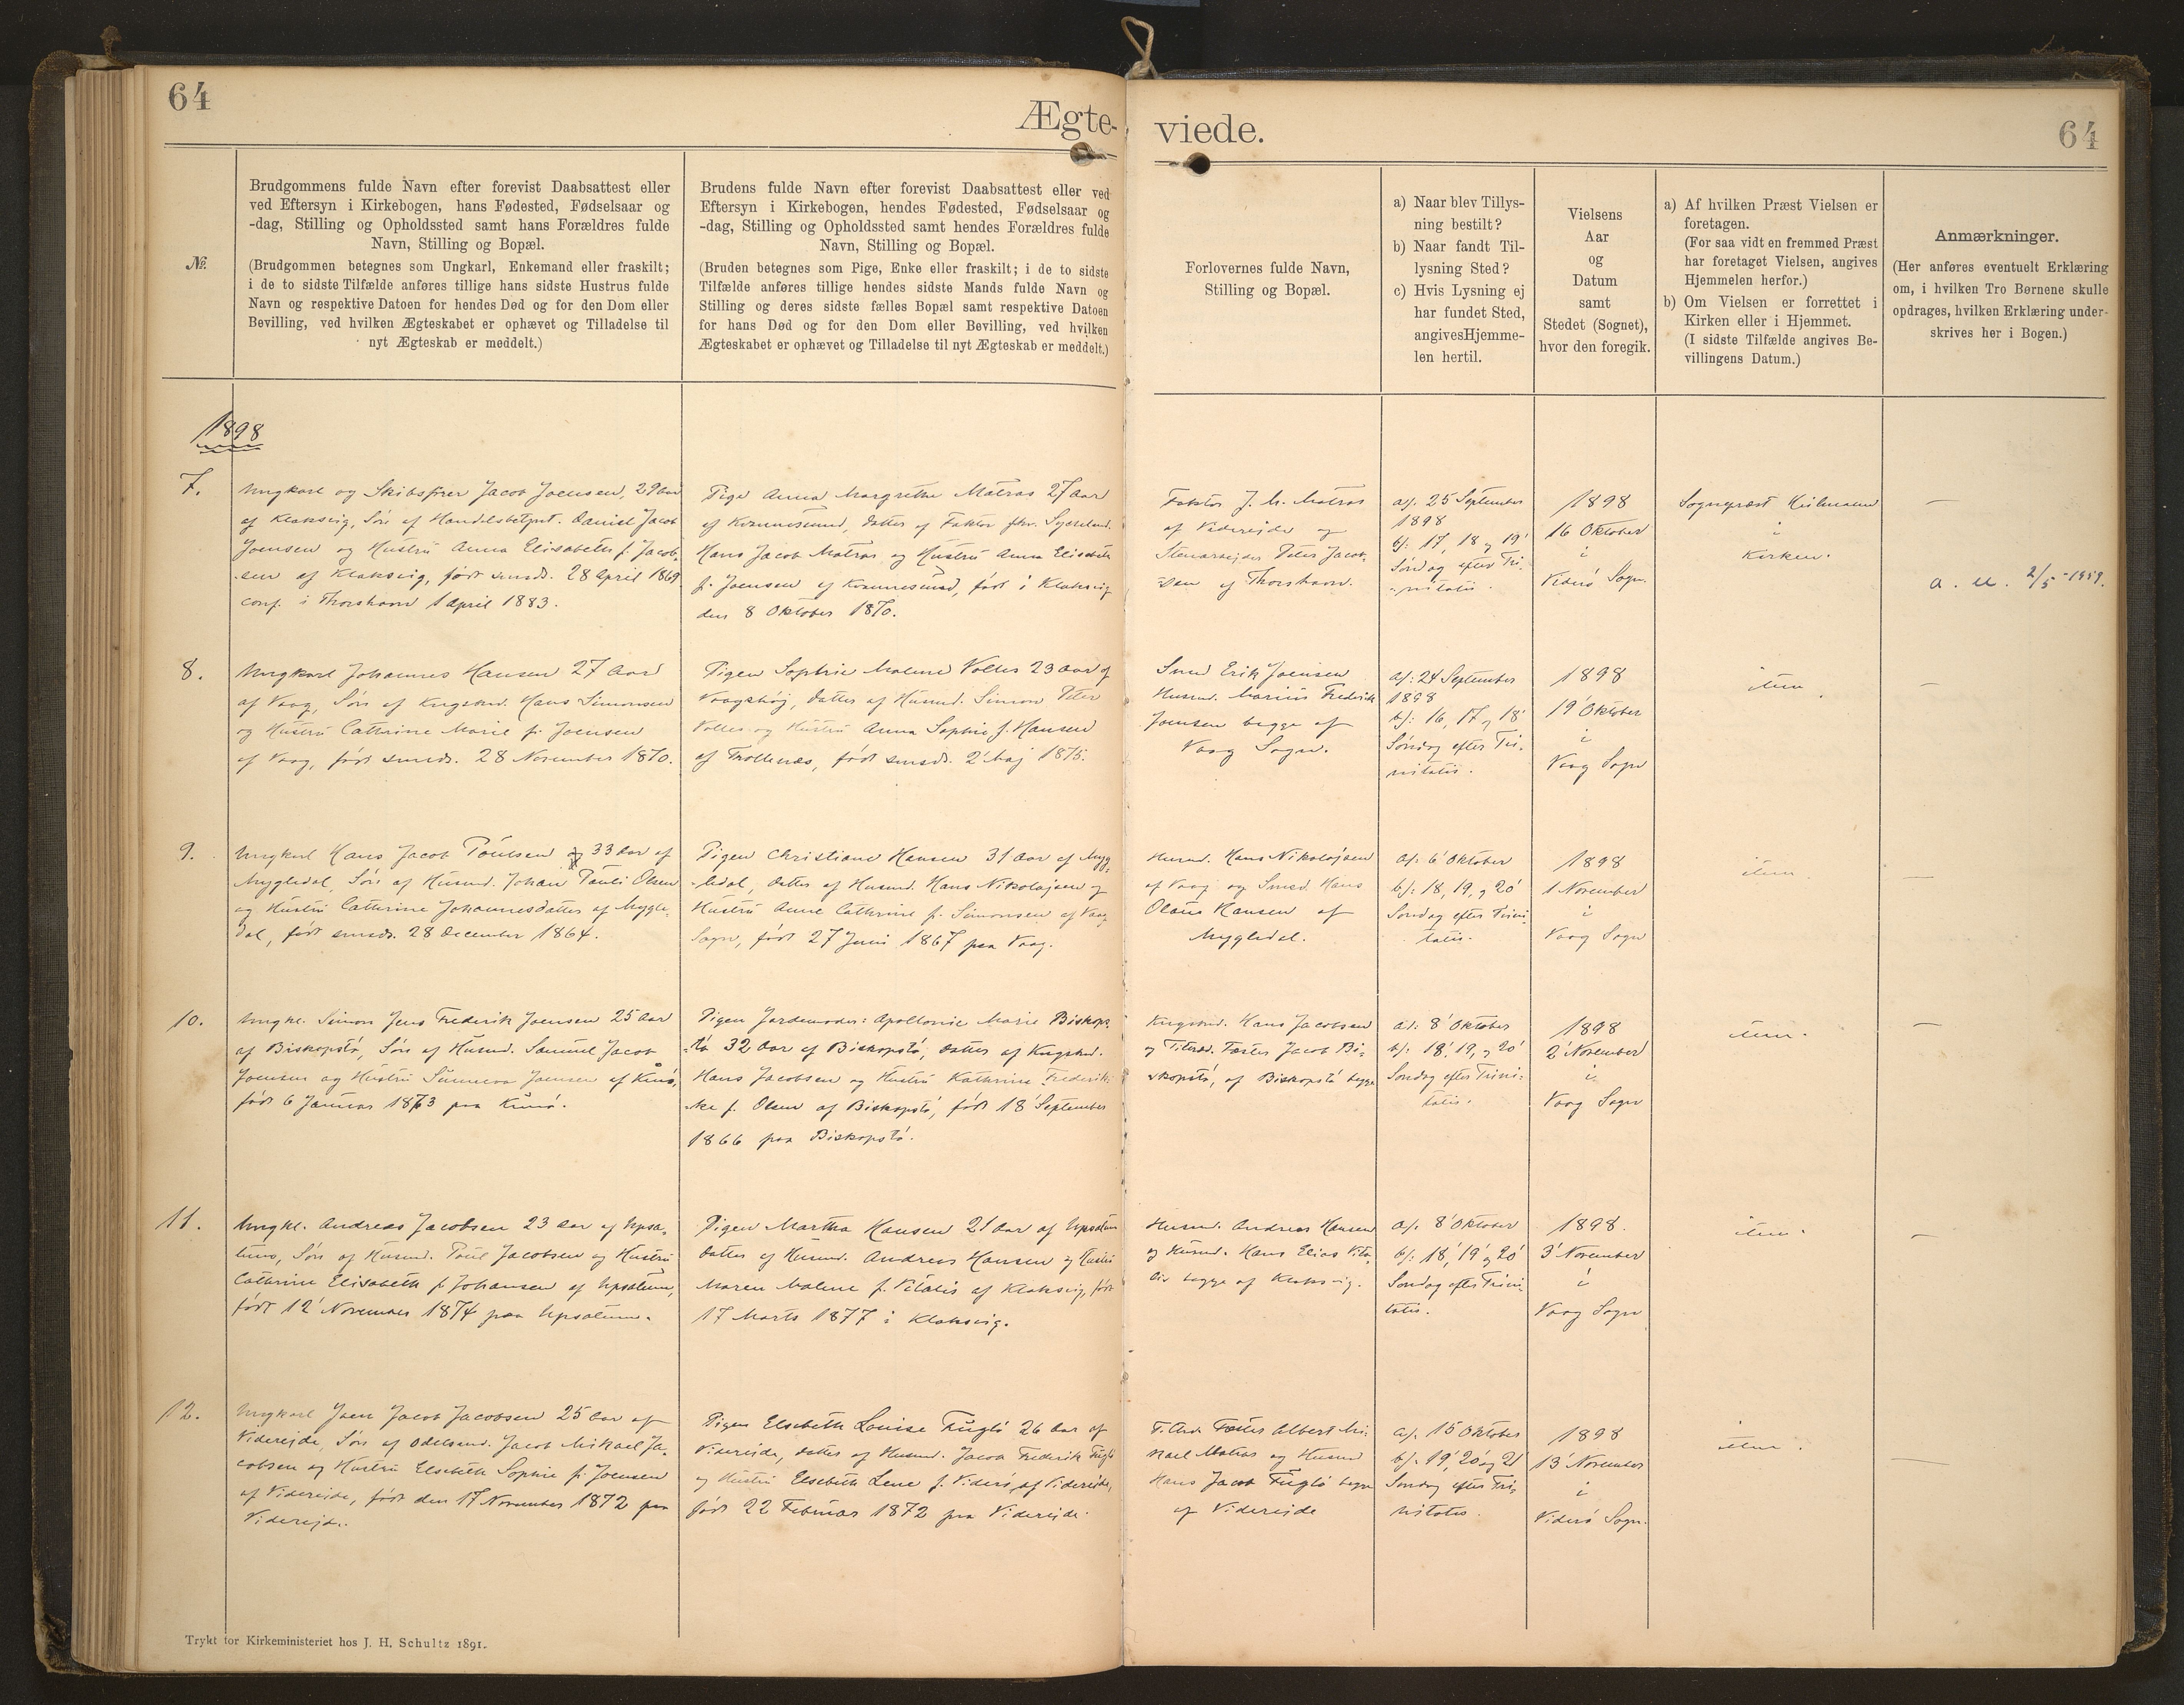 64
Ægte-
viede.
64
№
Brudgommens fulde Navn efter forevist Daabsattest eller
ved Eftersyn i Kirkebogen, hans Fødested, Fødselsaar og
-dag, Stilling og Opholdssted samt hans Forældres fulde
Navn, Stilling og Bopæl.
(Brudgommen betegnes som Ungkarl, Enkemand eller fraskilt;
i de to sidste Tilfælde anføres tillige hans sidste Hustrus fulde
Navn og respektive Datoen for hendes Død og for den Dom eller
Bevilling, ved hvilken Ægteskabet er ophævet og Tilladelse til
nyt Ægteskab er meddelt.)
Brudens fulde Navn efter forevist Daabsattest eller ved
Eftersyn i Kirkebogen, hendes Fødested, Fødselsaar og
-dag, Stilling og Opholdssted samt hendes Forældres fulde
Navn, Stilling og Bopæl.
(Bruden betegnes som Pige, Enke eller fraskilt; i de to sidste
Tilfælde anføres tillige hendes sidste Mands fulde Navn og
Stilling og deres sidste fælles Bopæl samt respektive Datoen
for hans Død og for den Dom eller Bevilling, ved hvilken
Ægteskabet er ophævet og Tilladelse til nyt Ægteskab er meddelt.)
Forlovernes fulde Navn,
Stilling og Bopæl.
a) Naar blev Tillys-
ning bestilt?
b) Naar fandt Til-
lysning Sted?
c) Hvis Lysning ej
har fundet Sted,
angives Hjemme-
len hertil.
Vielsens
Aar
og
Datum
samt
Stedet (Sognet),
hvor den foregik.
a) Af hvilken Præst Vielsen er
foretagen.
(For saa vidt en fremmed Præst
har foretaget Vielsen, angives
Hjemmelen herfor.)
b) Om Vielsen er forrettet i
Kirken eller i Hjemmet.
(I sidste Tilfælde angives Be-
villingens Datum.)
Anmærkninger.
(Her anføres eventuelt Erklæring
om, i hvilken Tro Børnene skulle
opdrages, hvilken Erklæring under-
skrives her i Bogen.)
1898
7.
Ungkarl og Skibsfører Jacob Joensen, 29 Aar
af Klaksvig, Søn af Handelsbetjent. Daniel Jacob
Joensen og Hustru Anna Elisabeth f. Jacob-
sen af Klaksvig, født smsds. 28 April 1869
conf. i Thorshavn 1 April 1883.
Pige Anna Margretha Matras 27 Aar
af Kvannesund, Datter af Faktor fhv.
Hans Jacob Matras og Hustru Anna Elisabeth
f. Joensen af Kvannesund, født i Klaksvig
den 8 Oktober 1870.
Faktor J. M. Matras
af Viderejde og
Stenarbejder Peter Jacob-
sen af Thorshavn.
a/: 25 September
1898
b/: 17, 18 og 19'
Søndag efter Tri-
nitatis.
1898
16 Oktober
i
Viderø Sogn.
Sognepræst Heilmann
i
Kirken.
—
a. u. 2/5 -1959.
8.
Ungkarl Johannes Hansen 27 Aar
af Vaag, Søn af Kngsbnd. Hans Simonsen
og Hustru Cathrine Marie f. Joensen
af Vaag, født smsds. 28 November 1870.
Pigen Sophie Malene Volles 23 Aar af
Vaagsbøj, Datter af Husmd. Simon Peter
Volles og Hustru Anna Sophie f. Hansen
af Trøllenæs, født smsds. 2' Maj 1875.
Smed Erik Joensen
Husmd. Marius Frederik
Joensen begge af
Vaag Sogn.
a/: 24 September
1898
b/: 16, 17 og 18'
Søndag efter Tri-
nitatis.
1898
19 Oktober
i
Vaag Sogn
item.
—
9.
Ungkarl Hans Jacob Poulsen 33 Aar af
Mygledal, Søn af Husmd. Johan Pauli Olsen
og Hustru Cathrine Johannesdatter af Mygle-
dal, født smsds. 28 December 1864.
Pigen Christiane Hansen 31 Aar af Myg-
ledal, Datter af Husmd. Hans Nikolajsen og
Hustru Anne Cathrine f. Simonsen af Vaag
Sogn, født 27 Juni 1867 paa Vaag.
Husmd. Hans Nikolajsen
af Vaag og Smed. Hans
Olaus Hansen af
Mygledal.
a/: 6' Oktober
b/: 18, 19, og 20'
Søndag efter Trini-
tatis.
1898
1 November
i
Vaag Sogn
item.
—
10.
Ungkl. Simon Jens Frederik Joensen 25 Aar
af Biskopstø, Søn af Husmd. Samuel Jacob
Joensen og Hustru Sunneva Joensen af Kunø,
født 6 Januar 1873 paa Kunø.
Pigen Jordemoder: Apollonie Marie Biskops-
tø 32 Aar af Biskopstø, Datter af Kngsbnd.
Hans Jacobsen og Hustru Kathrine Frederik-
ke f. Olsen af Biskopstø, født 18 September
1866 paa Biskopstø.
Kngsbnd. Hans Jacobsen
og Fæster Jacob Bi-
skopstø, af Biskopstø begge
a/: 8' Oktober
b/: 18', 19, og 20'
Søndag efter Trini-
tatis.
1898
2' November
i
Vaag Sogn
item.
—
11.
Ungkl. Andreas Jacobsen 23 Aar af Upsa-
luns, Søn af Husmd. Poul Jacobsen og Hustru
Cathrine Elisabeth f. Johansen af Upsalum,
født 12' November 1874 paa Upsalum.
Pigen Martha Hansen 21 Aar af Upsalum
Datter af Husmd. Andreas Hansen og Hustru
Maren Malene f. Vitalis af Klaksvig, født
17 Marts 1877 i Klaksvig.
Husmd. Andreas Hansen
og Husmd. Hans Elias Vita-
lis begge af Klaksvig.
a/: 8' Oktober
b/: 18', 19' og 20'
Søndag efter Trini-
tatis.
1898.
3' November
i
Vaag Sogn
item.
—
12.
Ungkarl Joen Jacob Jacobsen 25 Aar af
Viderejde, Søn af Odelsmd. Jacob Mikael Ja-
cobsen og Hustru Elsebeth Sophie f. Joensen
af Viderejde, født den 17 November 1872 paa
Viderejde.
Pigen Elsebeth Louise Fuglø 26 Aar af
Viderejde, Datter af Husmd. Jacob Frederik Fuglø
og Hustru Elsebeth Lene f. Viderø af Viderejde,
født 22 Februar 1872 paa Viderejde.
Fæster Albert Mi-
kael Matras og Husmd
Hans Jacob Fuglø begge
af Viderejde
a/. 15 Oktober
b/. 19', 20' og 21
Søndag efter Tri-
nitatis.
1898
13' November
i
Viderø Sogn.
item.
—
Trykt for Kirkeministeriet hos J. H. Schultz 1891.